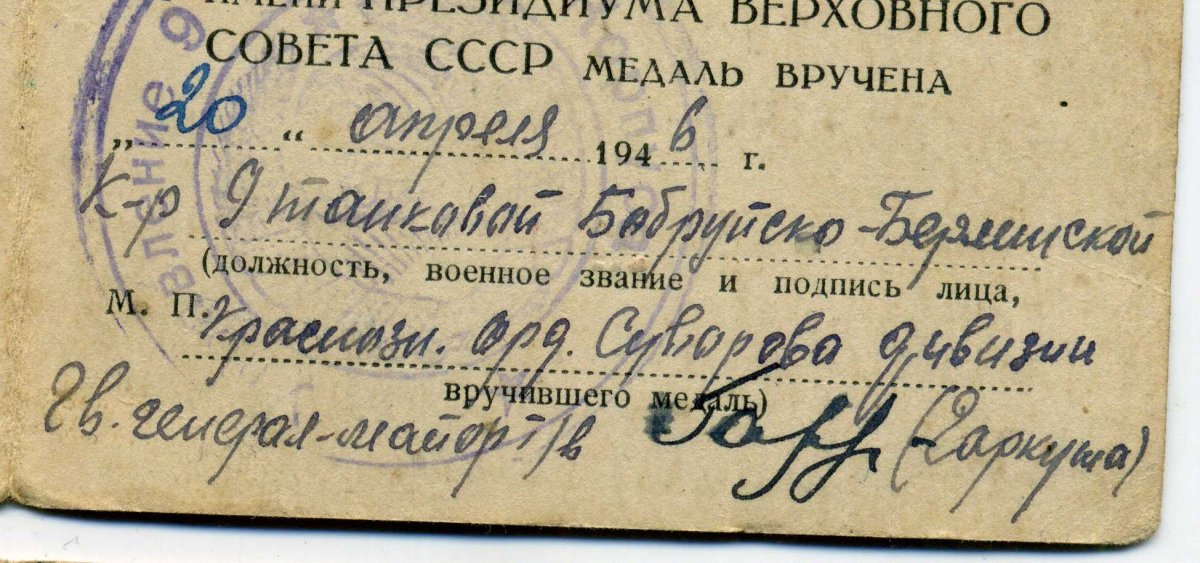 ИМЕНИ ПРЕЗИДИУМА ВЕРХОВНОГО
СОВЕТА СССР МЕДАЛЬ ВРУЧЕНА
„20“ апреля 1946 г.
К-р 9 танковой Бобруйско-Берлинской
(должность, военное звание и подпись лица,
М. П. Краснозн. орд. Суворова дивизии
вручившего медаль)
Гв. генерал-майор т/в (Гаркуша)